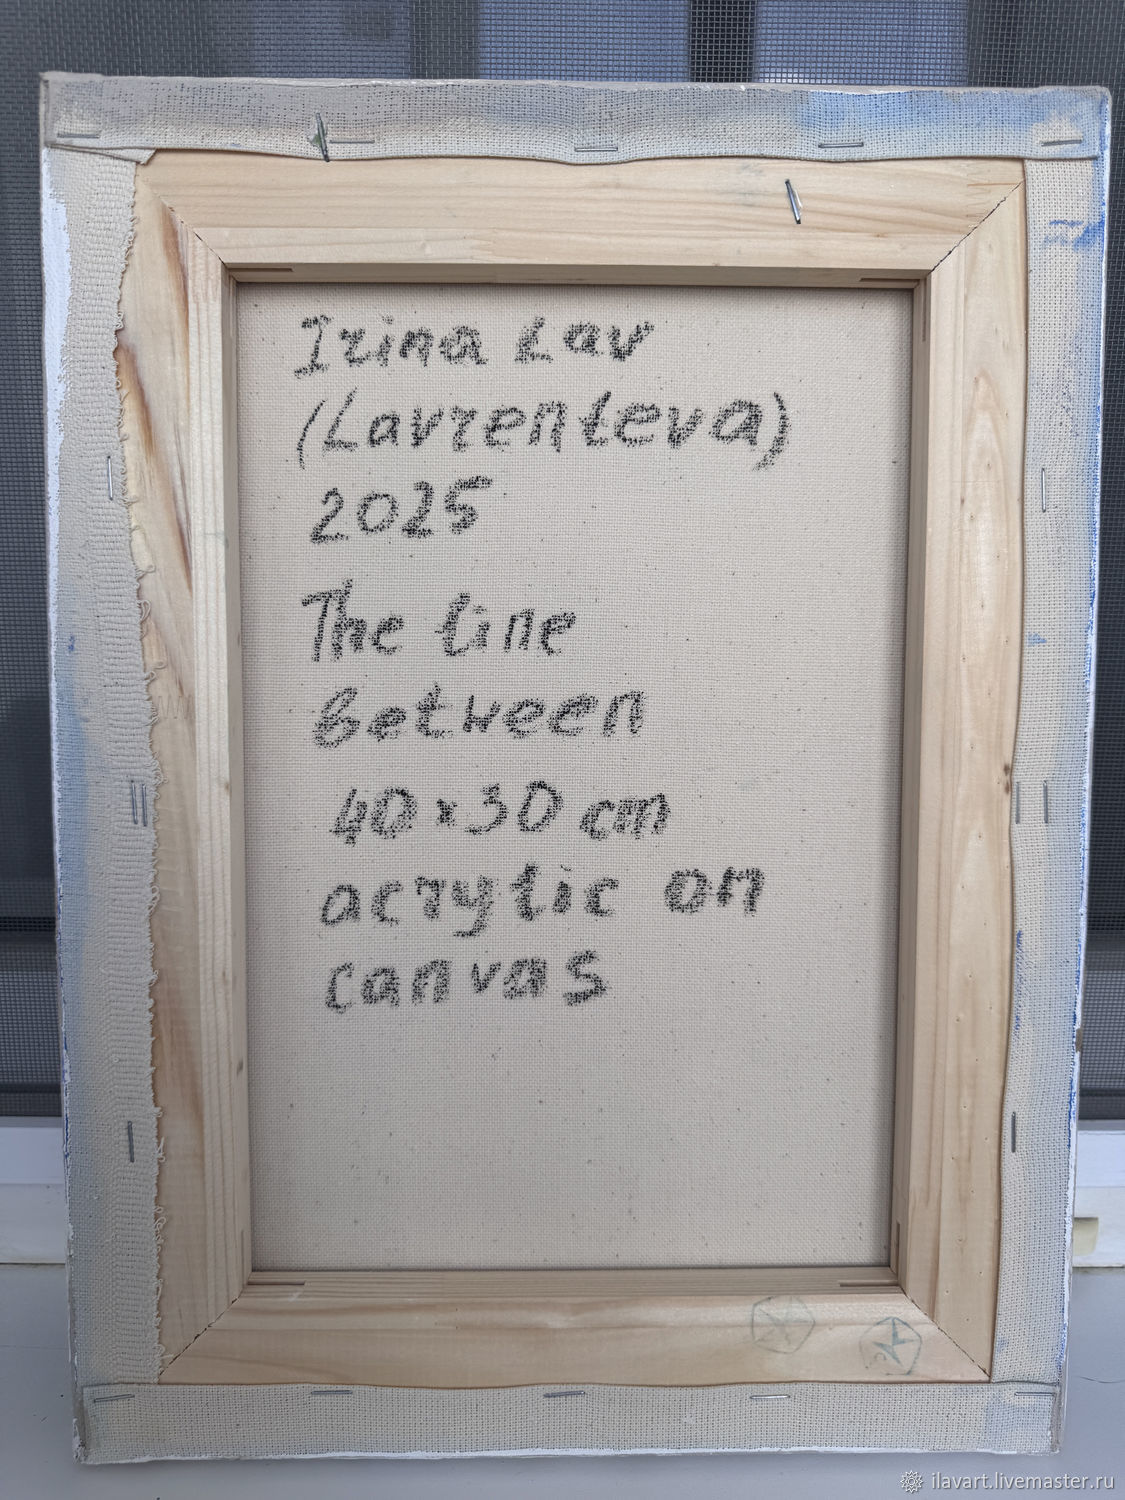 Irina Lav
(Lavrenteva)
2025
The line
Between
40x30 cm
acrylic on
canvas
ilavart.livemaster.ru